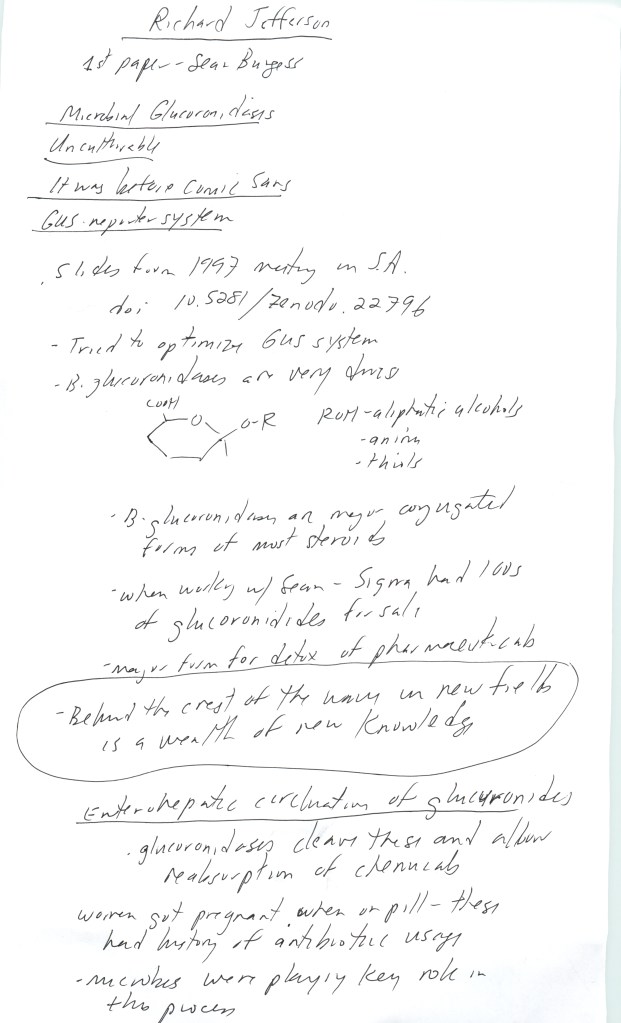 Richard Jefferson
1st paper - Sean Burgess
Microbial Glucuronidases
Unculturable
It was before Comic Sans
GUS reporter system
. Slides from 1997 meeting in S.A.
doi 10.5281/zenodo.22796
- Tried to optimize GUS system
- B. glucuronidases are very
COOH
O
O-R
ROH - aliphatic alcohols
- thiols
- B. glucuronidases are major conjugated
forms of most steroids
- when working w/ Sean - Sigma had 100s
of glucoronidides for sale
- major form for detox of pharmaceuticals
- Behind the crest of the wave in new fields
is a wealth of new knowledge
Enterohepatic circluation of glucuronides
. glucoronidases cleave these and allow
reabsorption of chemicals
women got pregnant when on pill - these
had history of antibiotic usage
- microbes were playing key role in
this process